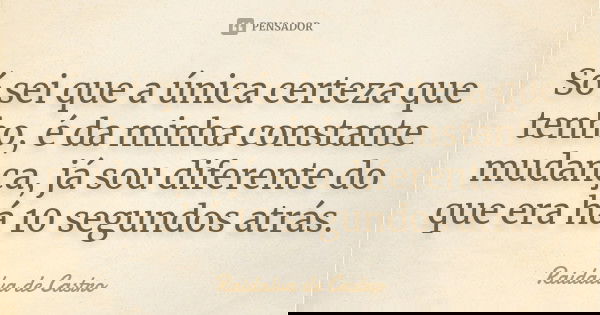 PENSADOR
Só sei que a única certeza que
tenho, é da minha constante
mudança, já sou diferente do
que era há 10 segundos atrás.
Raidalva de Castro